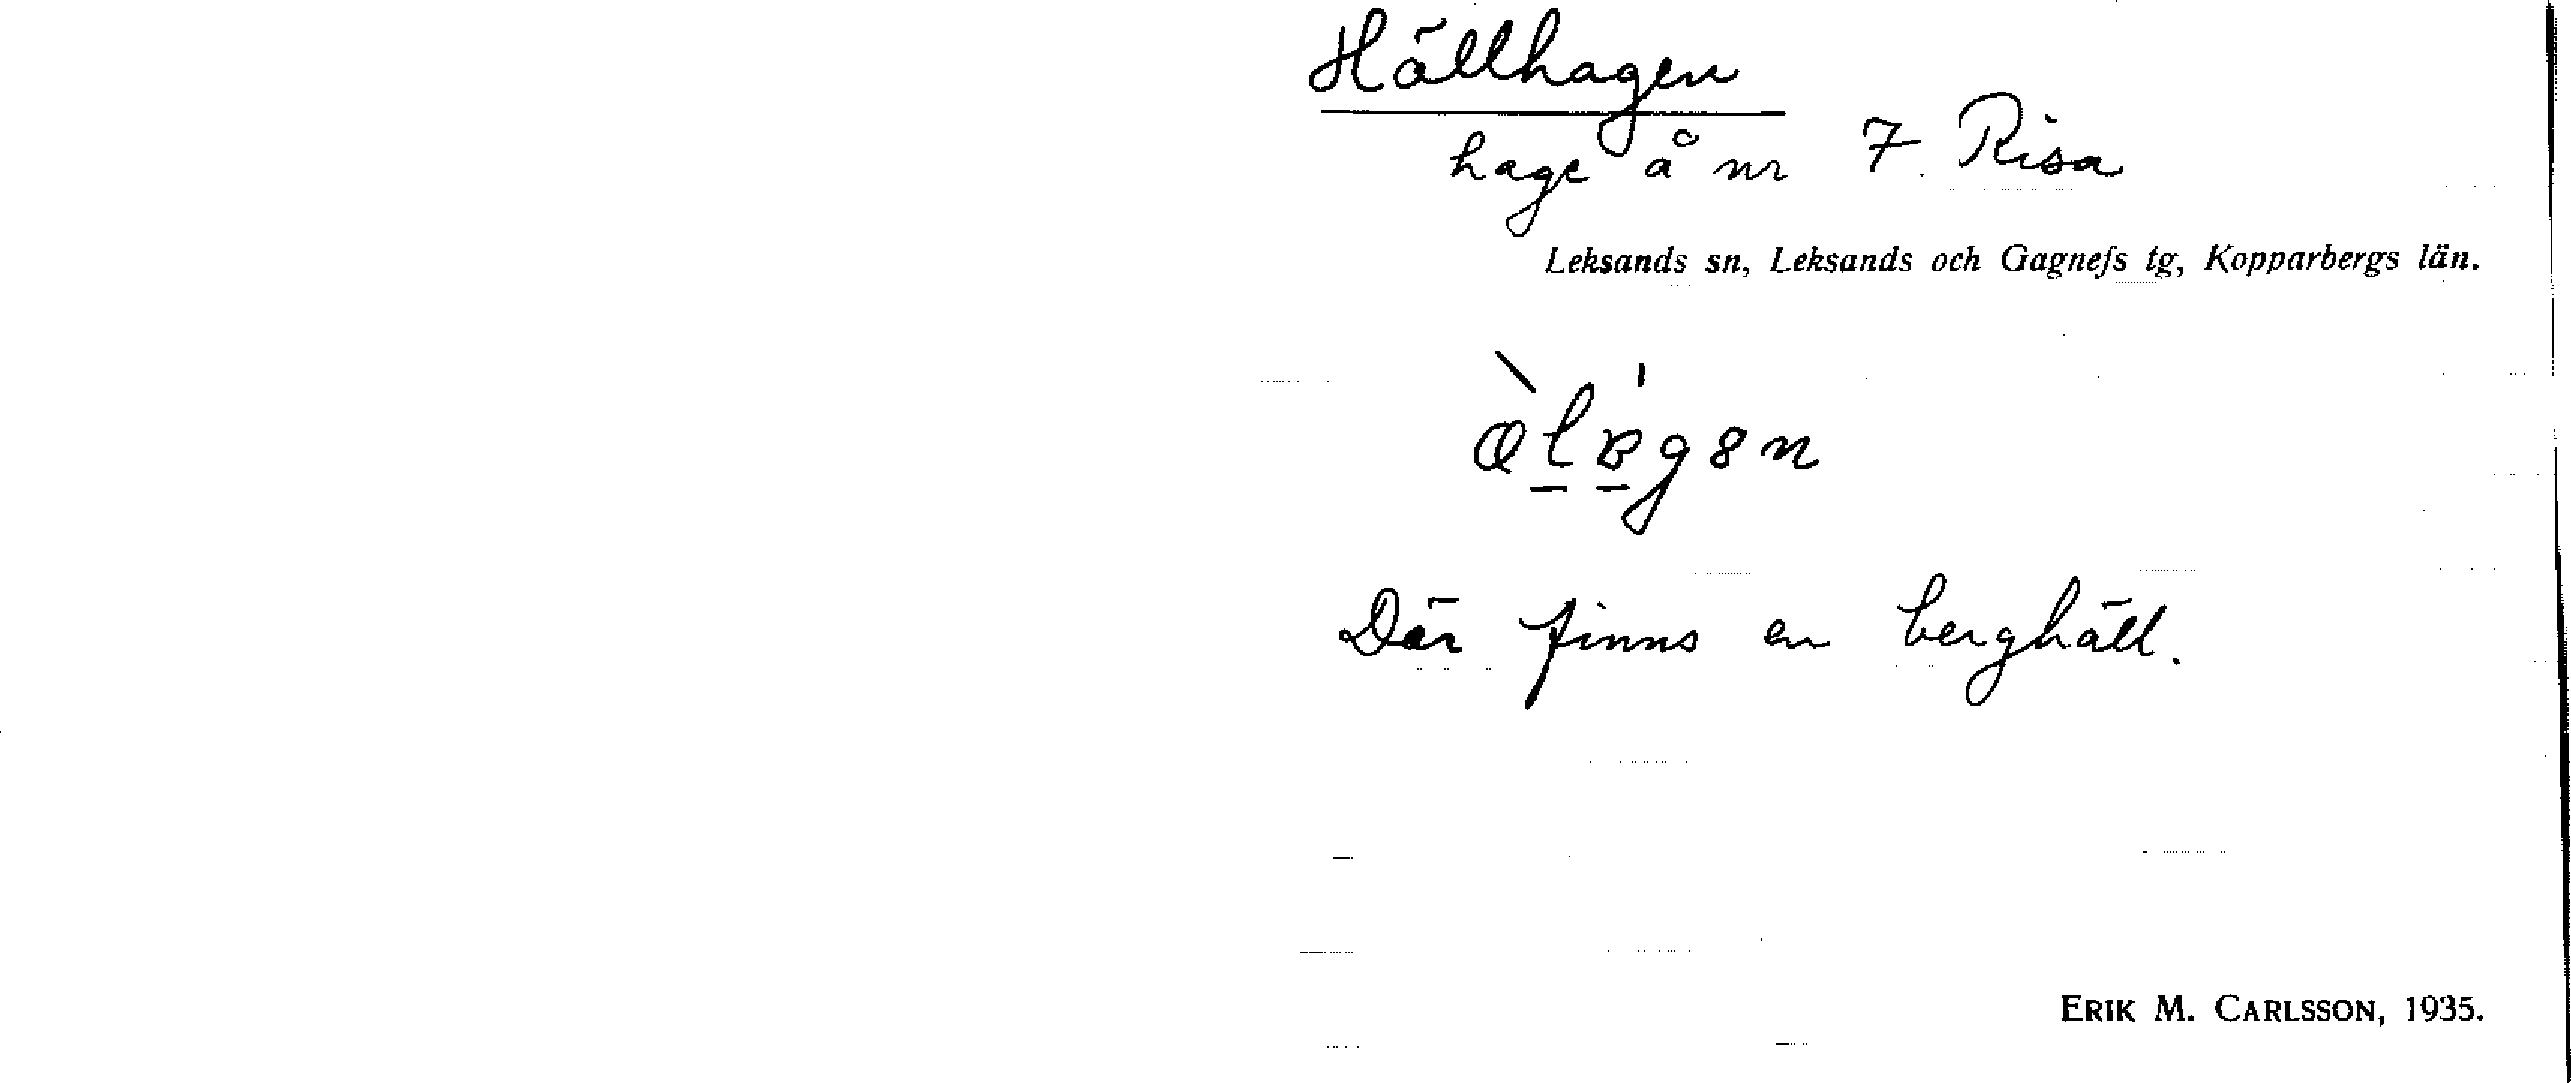 Hällhagen
hage å nr 7. Risa
Leksands sn, Leksands och Gagnefs tg, Kopparbergs län.
Där finns en berghäll.
ERIK M. CARLSSON, 1935.